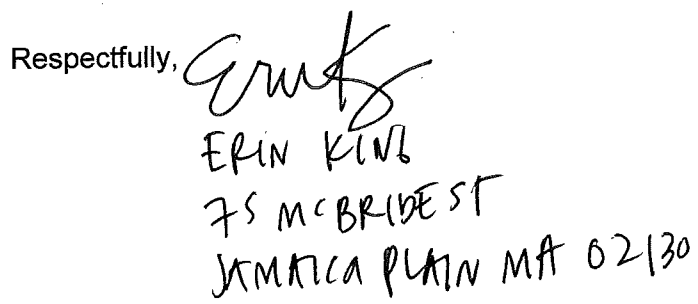 Respectfully, Erin K
ERIN KING
75 MCBRIDE ST
JAMAICA PLAIN MA 02130